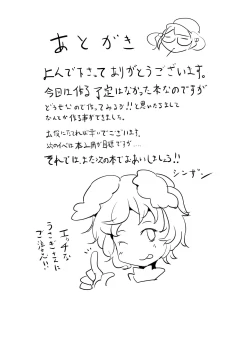 あとがき
よんで下さってありがとうございます。
今回は作る予定はなかった本なのですが
どうせなので作ってみるか!!と思いたちまして
なんとか作る事ができました。
お役にたてれば幸いでございます。
次のイベは本2冊が目標ですが…
それでは、また次の本でお会いしましょう!!
シンザン
エッチな
うさぎさんに
ご注意!!